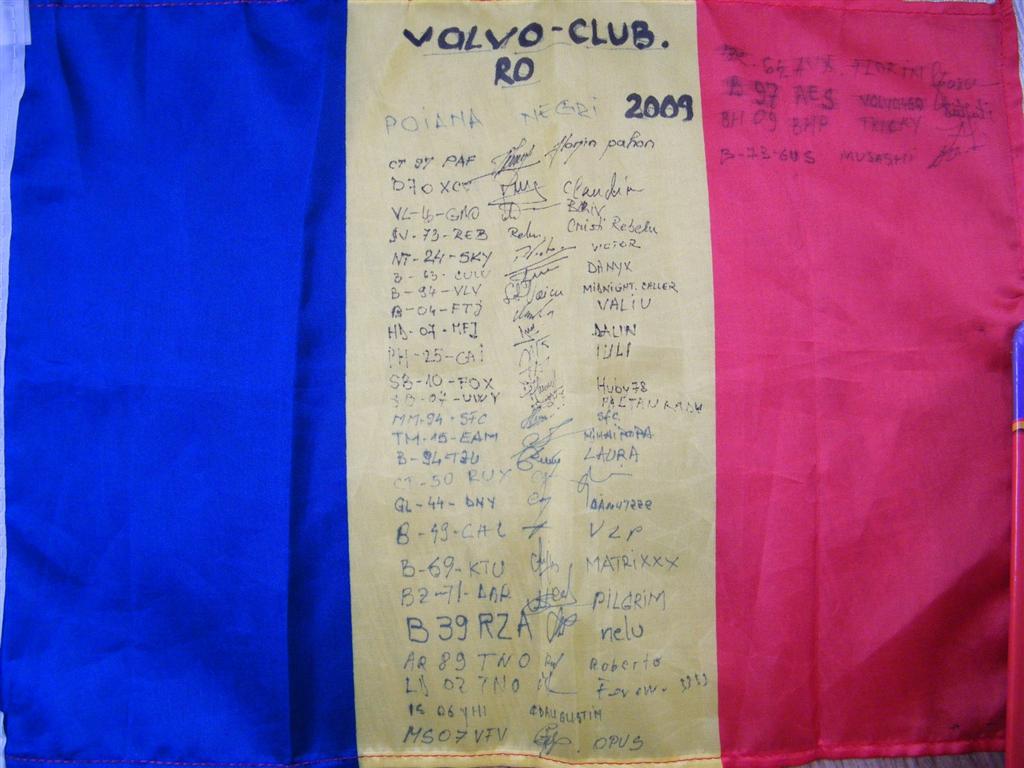 VOLVO-CLUB.
RO
2009
POIANA NEGRI
CT 97 PAF florin pahon
D70XCT Claudiu
VL-16-GNO BRIV
SV-73-REB Relu Cristi Rebelu
NT-24-SKY VICTOR
B-63- DANYX
B-94-VLV MIDNIGHT.CALLER
B-04-FTJ VALIU
HD-07-MFJ DALIN
PH-25-GAI IULI
SB-10-FOX Hubv78
SB-07-UWY PAETAN RADU
MM-94-SFC SFC
TM-15-EAM MIHAI
B-94TZU LAURA
CT-50 RUX
GL-44-DNY DANUTZZZ
B-49-CAL VLP
B-69-KTU MATRIXXX
BZ-71-DAR PILGRIM
B 39 RZA nelu
AR 89 TNO Roberto
02 TNO
IS 06 YHI ADAUGUSTIN
MS07VFV OPUS
62 AVX FLORIN
B 97 AES
BH 09 BMP TRICKY
B-73-GUS MUSASHI